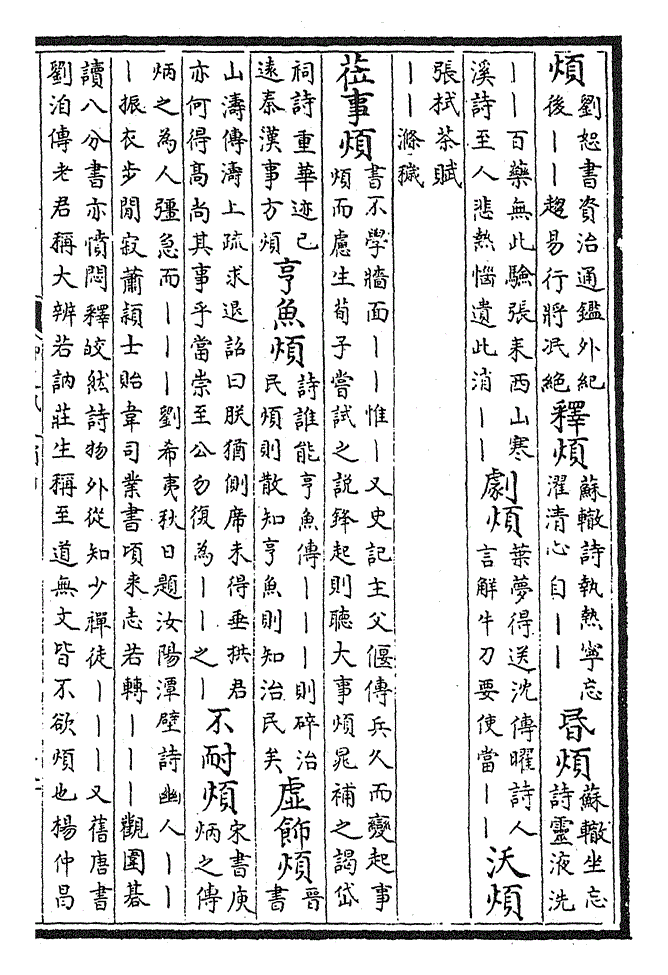 煩 劉恕書資治通鑑外紀
後丨丨超易行將泯絕
釋煩 蘇轍詩執熱寧忘
濯清心自丨丨
昏煩 蘇轍坐忘
詩靈液洗
丨丨百藥無此驗張耒西山寒
溪詩至人悲熱惱遺此消丨丨
劇煩 葉夢得送沈傳曜詩人
言解牛刀要使當丨丨
沃煩
張栻茶賦
丨丨滌穢
莅事煩 書不學牆面丨丨惟丨又史記主父偃傳兵久而變起事
煩而慮生荀子嘗試之說鋒起則聽大事煩晁補之謁岱
祠詩重華迹已
遠秦漢事方煩
亨魚煩 詩誰能亨魚傳丨丨丨則碎治
民煩則散知亨魚則知治民矣
虛飾煩 晉
書
山濤傳濤上疏求退詔曰朕猶側席未得垂拱君
亦何得高尚其事乎當崇至公勿復為丨丨之丨
不耐煩 宋書庾
炳之傳
炳之為人彊急而丨丨丨劉希夷秋日題汝陽潭壁詩幽人丨丨
丨振衣步閒寂蕭頴士貽韋司業書頃来志若轉丨丨丨觀圍碁
讀八分書亦憤悶釋皎然詩物外從知少禪徒丨丨丨又舊唐書
劉泊傳老君稱大辨若訥莊生稱至道無文皆不欲煩也楊仲昌